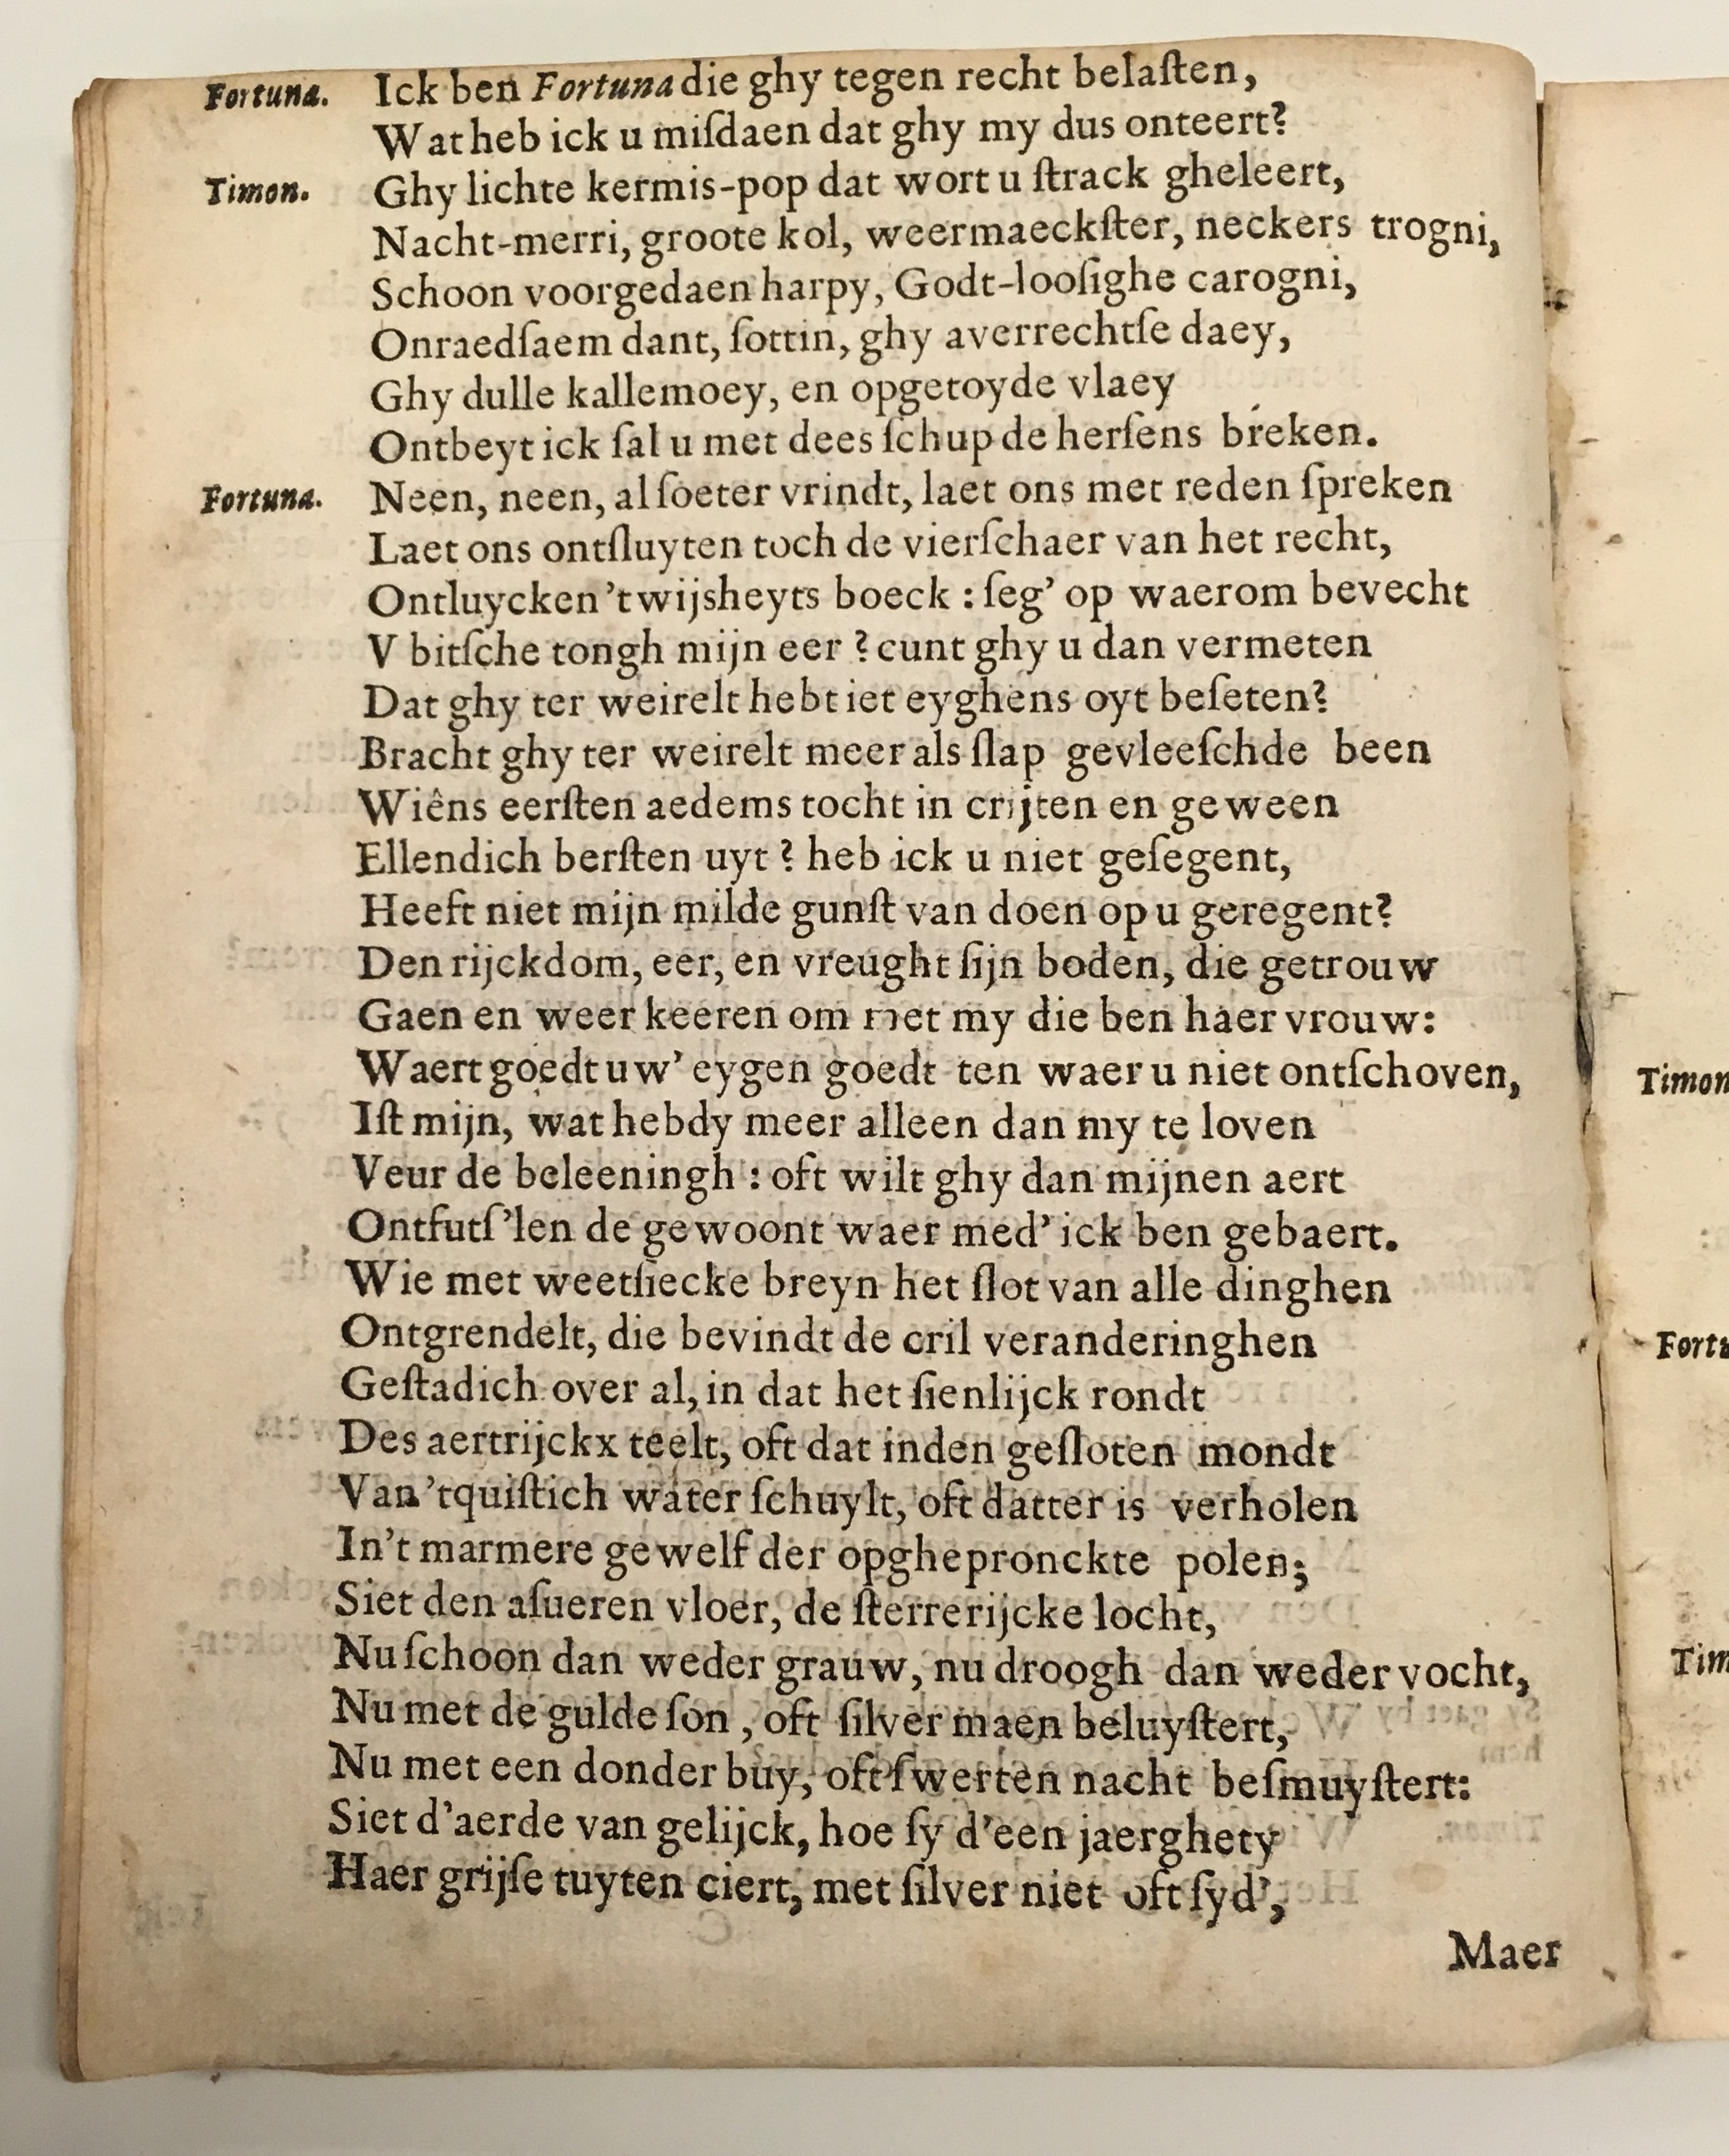 Fortuna. Ick ben Fortuna die ghy tegen recht belaſten,
Wat heb ick u miſdaen dat ghy my dus onteert?
Timon. Ghy lichte kermis-pop dat wort u ſtrack gheleert,
Nacht-merri, groote kol, weermaeckſter, neckers trogni,
Schoon voorgedaen harpy, Godt-looſighe carogni,
Onraedſaem dant, ſottin, ghy averrechtſe daey,
Ghy dulle kallemoey, en opgetoyde vlaey
Ontbeyt ick ſal u met dees ſchup de herſens breken.
Fortuna. Neen, neen, al ſoeter vrindt, laet ons met reden ſpreken
Laet ons ontſluyten toch de vierſchaer van het recht,
Ontluycken 't wijsheyts boeck : ſeg' op waerom bevecht
V bitſche tongh mijn eer ? cunt ghy u dan vermeten
Dat ghy ter weirelt hebt iet eyghens oyt beſeten?
Bracht ghy ter weirelt meer als ſlap gevleeſchde been
Wiêns eerſten aedems tocht in crijten en geween
Ellendich berſten uyt ? heb ick u niet geſegent,
Heeft niet mijn milde gunſt van doen op u geregent?
Den rijckdom, eer, en vreught ſijn boden, die getrouw
Gaen en weer keeren om met my die ben haer vrouw:
Waert goedt uw' eygen goedt ten waer u niet ontſchoven,
Iſt mijn, wat hebdy meer alleen dan my te loven
Veur de beleeningh : oft wilt ghy dan mijnen aert
Ontfutſ'len de gewoont waer med' ick ben gebaert.
Wie met weetſiecke breyn het ſlot van alle dinghen
Ontgrendelt, die bevindt de cril veranderinghen
Geſtadich over al, in dat het ſienlijck rondt
Des aertrijckx teelt, oft dat inden geſloten mondt
Van 'tquiſtich water ſchuylt, oft datter is verholen
In't marmere gewelf der opghepronckte polen;
Siet den aſueren vloer, de ſterrerijcke locht,
Nu ſchoon dan weder grauw, nu droogh dan weder vocht,
Nu met de gulde ſon, oft ſilver maen beluyſtert,
Nu met een donder buy, oft ſwerten nacht beſmuyſtert:
Siet d'aerde van gelijck, hoe ſy d'een jaerghety
Haer grijſe tuyten ciert, met ſilver niet oft ſyd',
Maer
Timon
Fortu
Tim